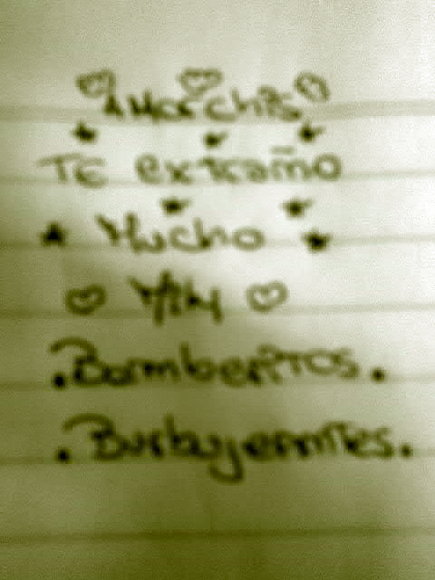 Amorchis
TE extraño
Mucho
Mily
.Bomberitos.
.Burbujeantes.